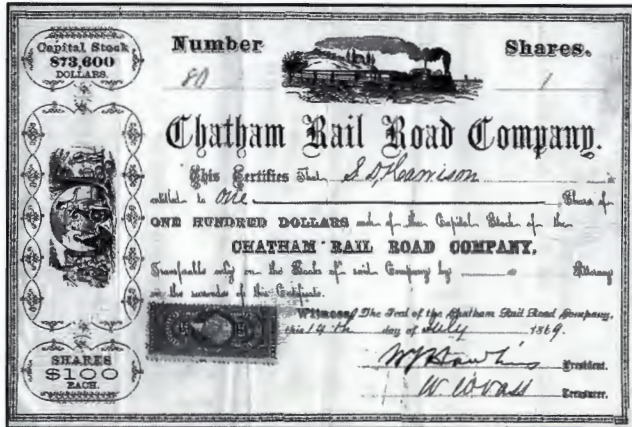 Capital Stock
$73,600
DOLLARS.
Number
80
Shares.
1
Chatham Rail Road Company.
This Certifies That S. D. Harrison is
entitled to One Share of
ONE HUNDRED DOLLARS each of the Capital Stock of the
CHATHAM RAIL ROAD COMPANY,
Transferable only on the Books of said Company by or Attorney
on the surrender of this Certificate.
Witness, The Seal of the Chatham Rail Road Company,
this 14th day of July 1869.
President.
W. W. Vass Treasurer.
SHARES
$100
EACH.